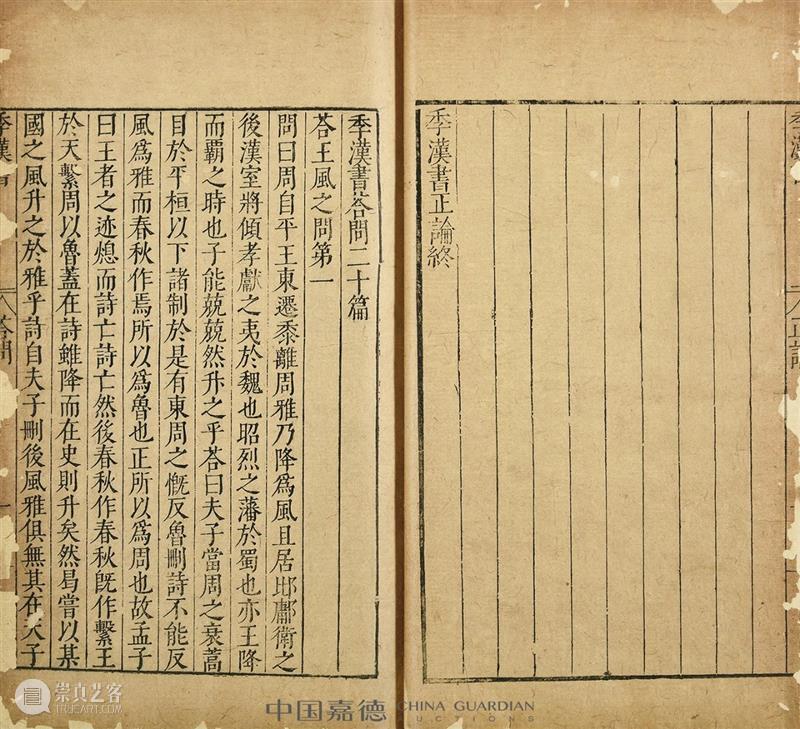 季漢書正論終
季漢書荅問二十篇
荅王風之問第一
問曰周自平王東遷黍離周雅乃降爲風且居邶鄘衛之
後漢室將傾孝獻之夷於魏也昭烈之藩於蜀也亦王降
而霸之時也子能兢兢然升之乎荅曰夫子當周之衰蒿
目於平桓以下諸制於是有東周之慨反魯刪詩不能反
風爲雅而春秋作焉所以爲魯也正所以爲周也故孟子
曰王者之迹熄而詩亡詩亡然後春秋作春秋旣作繫王
於天繫周以魯蓋在詩雖降而在史則升矣然曷嘗以某
國之風升之於雅乎詩自夫子刪後風雅俱無其在夫子
季漢
荅問
一
崇真艺客
TRUEART.COM
中国嘉德 CHINA GUARDIAN
AUCTIONS